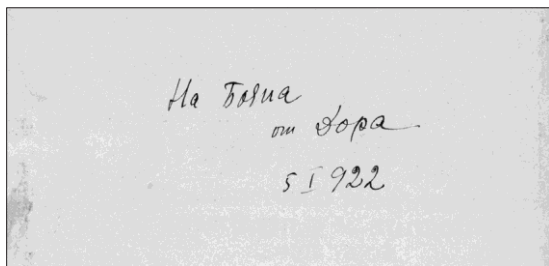 На Бояна
от Дора
5 I 922